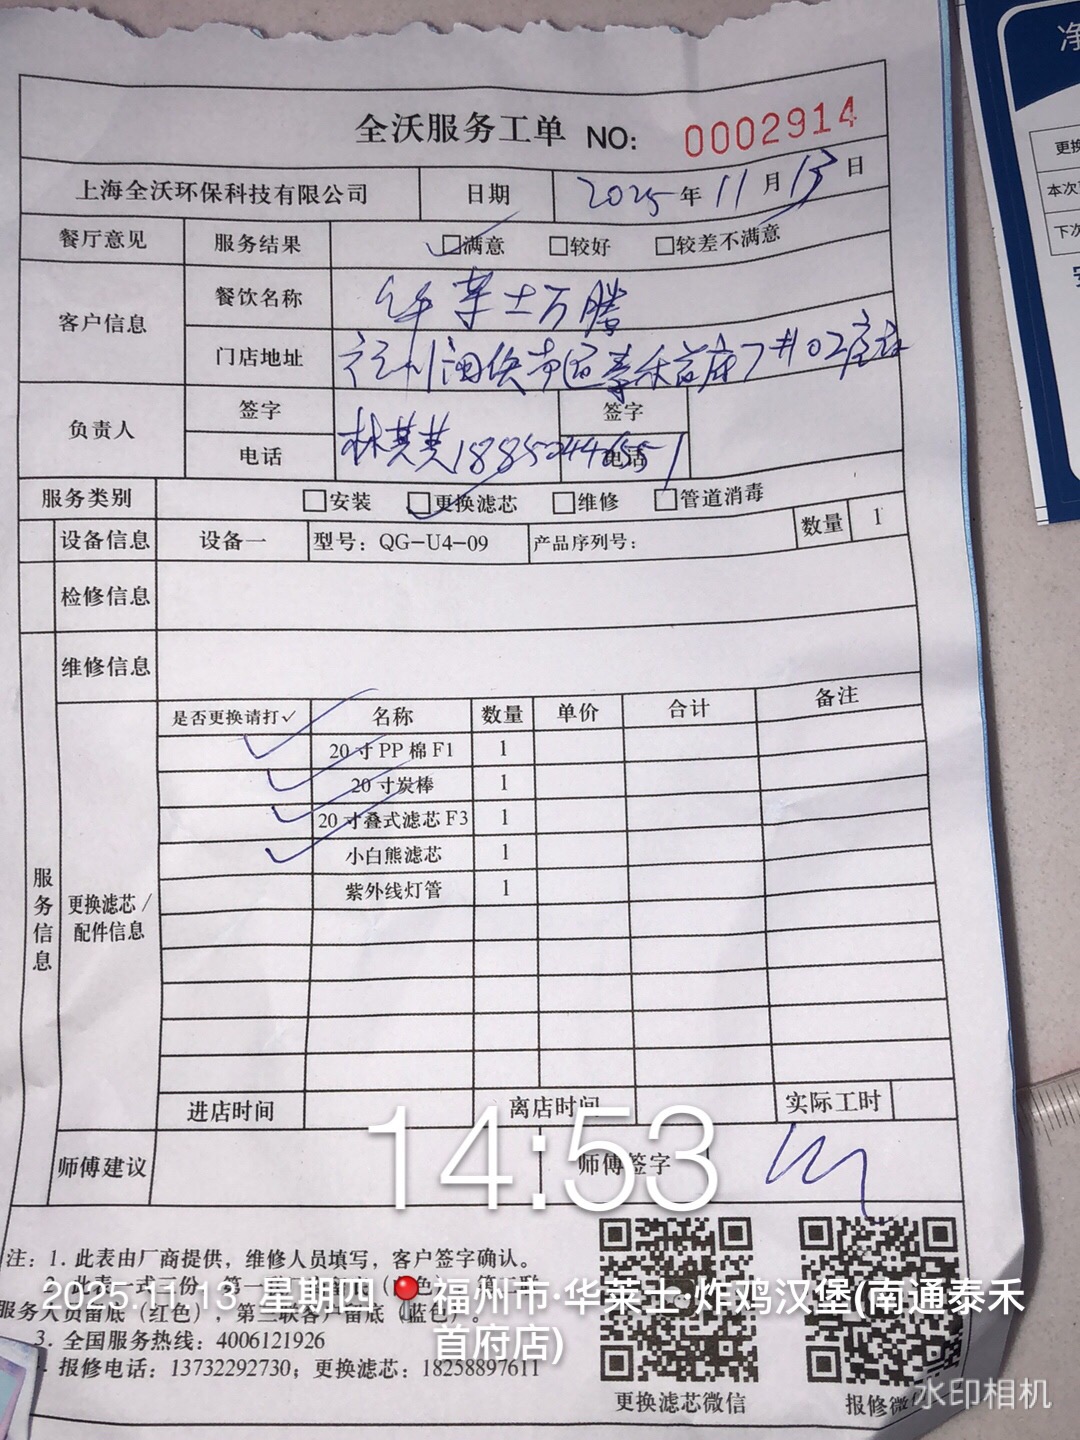 全沃服务工单 NO: 0002914
上海全沃环保科技有限公司 日期 2025年 11月 13日
餐厅意见 服务结果 ☑满意 □较好 □较差不满意
客户信息 餐饮名称 华莱士万腾
门店地址 福州闽侯南通泰禾首府7#02店
负责人 签字 林其 签字
电话 电话
服务类别 □安装 ☑更换滤芯 □维修 □管道消毒
设备信息 设备一 型号: QG-U4-09 产品序列号: 数量 1
检修信息
维修信息
服务信息
更换滤芯/配件信息
是否更换请打✓ 名称 数量 单价 合计 备注
✓ 20寸PP棉F1 1
✓ 20寸炭棒 1
✓ 20寸叠式滤芯F3 1
✓ 小白熊滤芯 1
紫外线灯管 1
进店时间 离店时间 实际工时
14:53
师傅建议 师傅签字
注: 1. 此表由厂商提供，维修人员填写，客户签字确认。
2. 此表一式三份，第一
服务人员留底（红色），第三联客户留底（蓝色）。
3. 全国服务热线: 4006121926
报修电话: 13732292730; 更换滤芯: 18258897611
更换滤芯微信 报修微
2025.11.13 星期四 福州市·华莱士·炸鸡汉堡(南通泰禾
首府店)
水印相机
净
更换
本次
下次